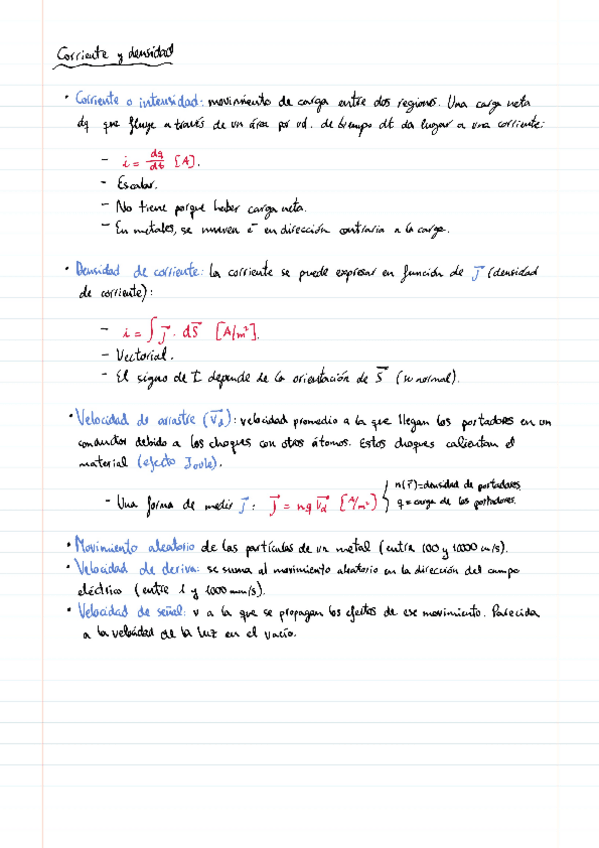 Corriente y densidad
• Corriente o intensidad: movimiento de carga entre dos regiones. Una carga neta
dq que fluye a través de un área por ud. de tiempo dt da lugar a una corriente:
- i = dq/dt [A].
- Escalar.
- No tiene porque haber carga neta.
- En metales, se mueven e⁻ en dirección contraria a la carga.
• Densidad de corriente: la corriente se puede expresar en función de J⃗ (densidad
de corriente):
- i = ∫ J⃗ · dS⃗ [A/m²].
- Vectorial.
- El signo de I depende de la orientación de S⃗ (su normal).
• Velocidad de arrastre (v⃗d): velocidad promedio a la que llegan los portadores en un
conductor debido a los choques con otros átomos. Estos choques calientan el
material (efecto Joule).
- Una forma de medir J⃗: J⃗ = nq v⃗d [A/m²] } n(r⃗)=densidad de portadores
q = carga de los portadores.
• Movimiento aleatorio de las partículas de un metal (entre 100 y 1000 m/s).
• Velocidad de deriva: se suma al movimiento aleatorio en la dirección del campo
eléctrico (entre 1 y 1000 mm/s).
• Velocidad de señal: v a la que se propagan los efectos de ese movimiento. Parecida
a la velocidad de la luz en el vacío.